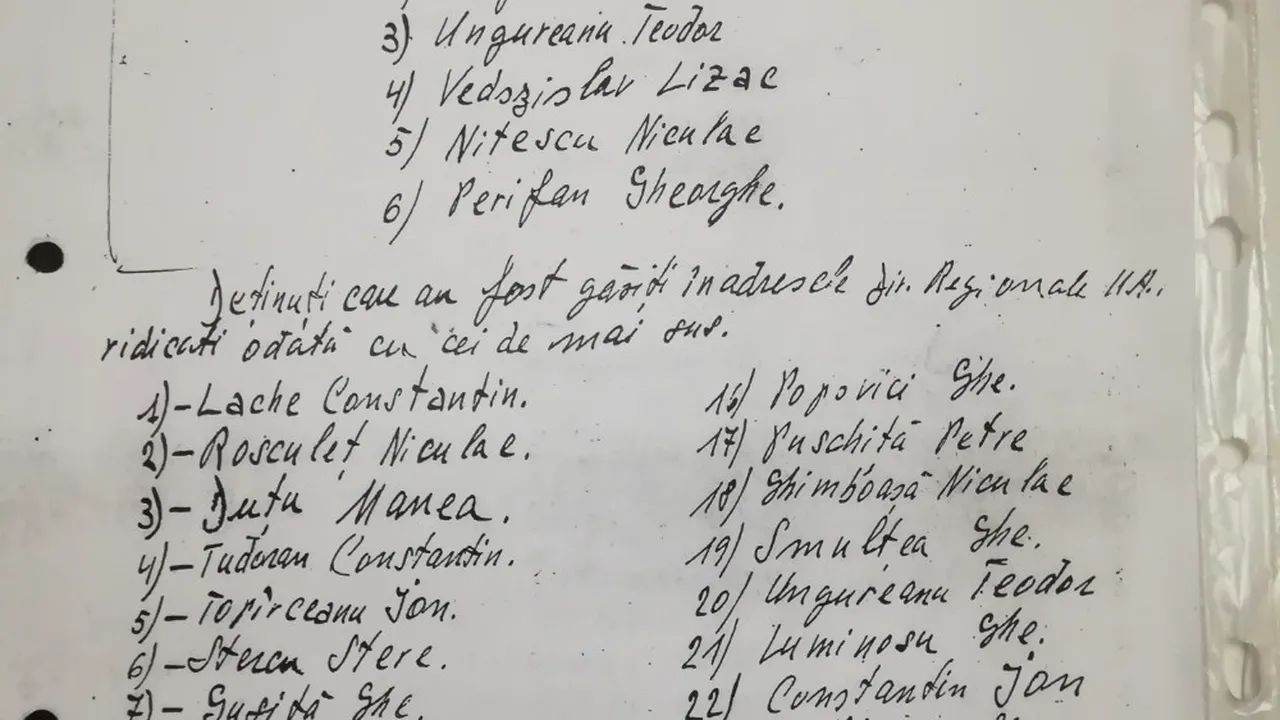 3) Ungureanu Teodor
4) Vedszislav Lizac
5) Nitescu Niculae
6) Perifan Gheorghe.
Deținuți care au fost găsiți în adresele dir. Regionale M.A.,
ridicați odată cu cei de mai sus.
1)-Lache Constantin.
2)-Rosculeț Niculae.
3)-Duțu Manea.
4)-Tudoran Constantin.
5)-Topîrceanu Ion.
6)-Stercu Stere.
7)- Gușită Ghe.
16) Popovici Ghe.
17) Puschită Petre
18) Ghimboașă Niculae
19) Smultea Ghe.
20) Ungureanu Teodor
21) Luminosu Ghe.
22) Constantin Ion